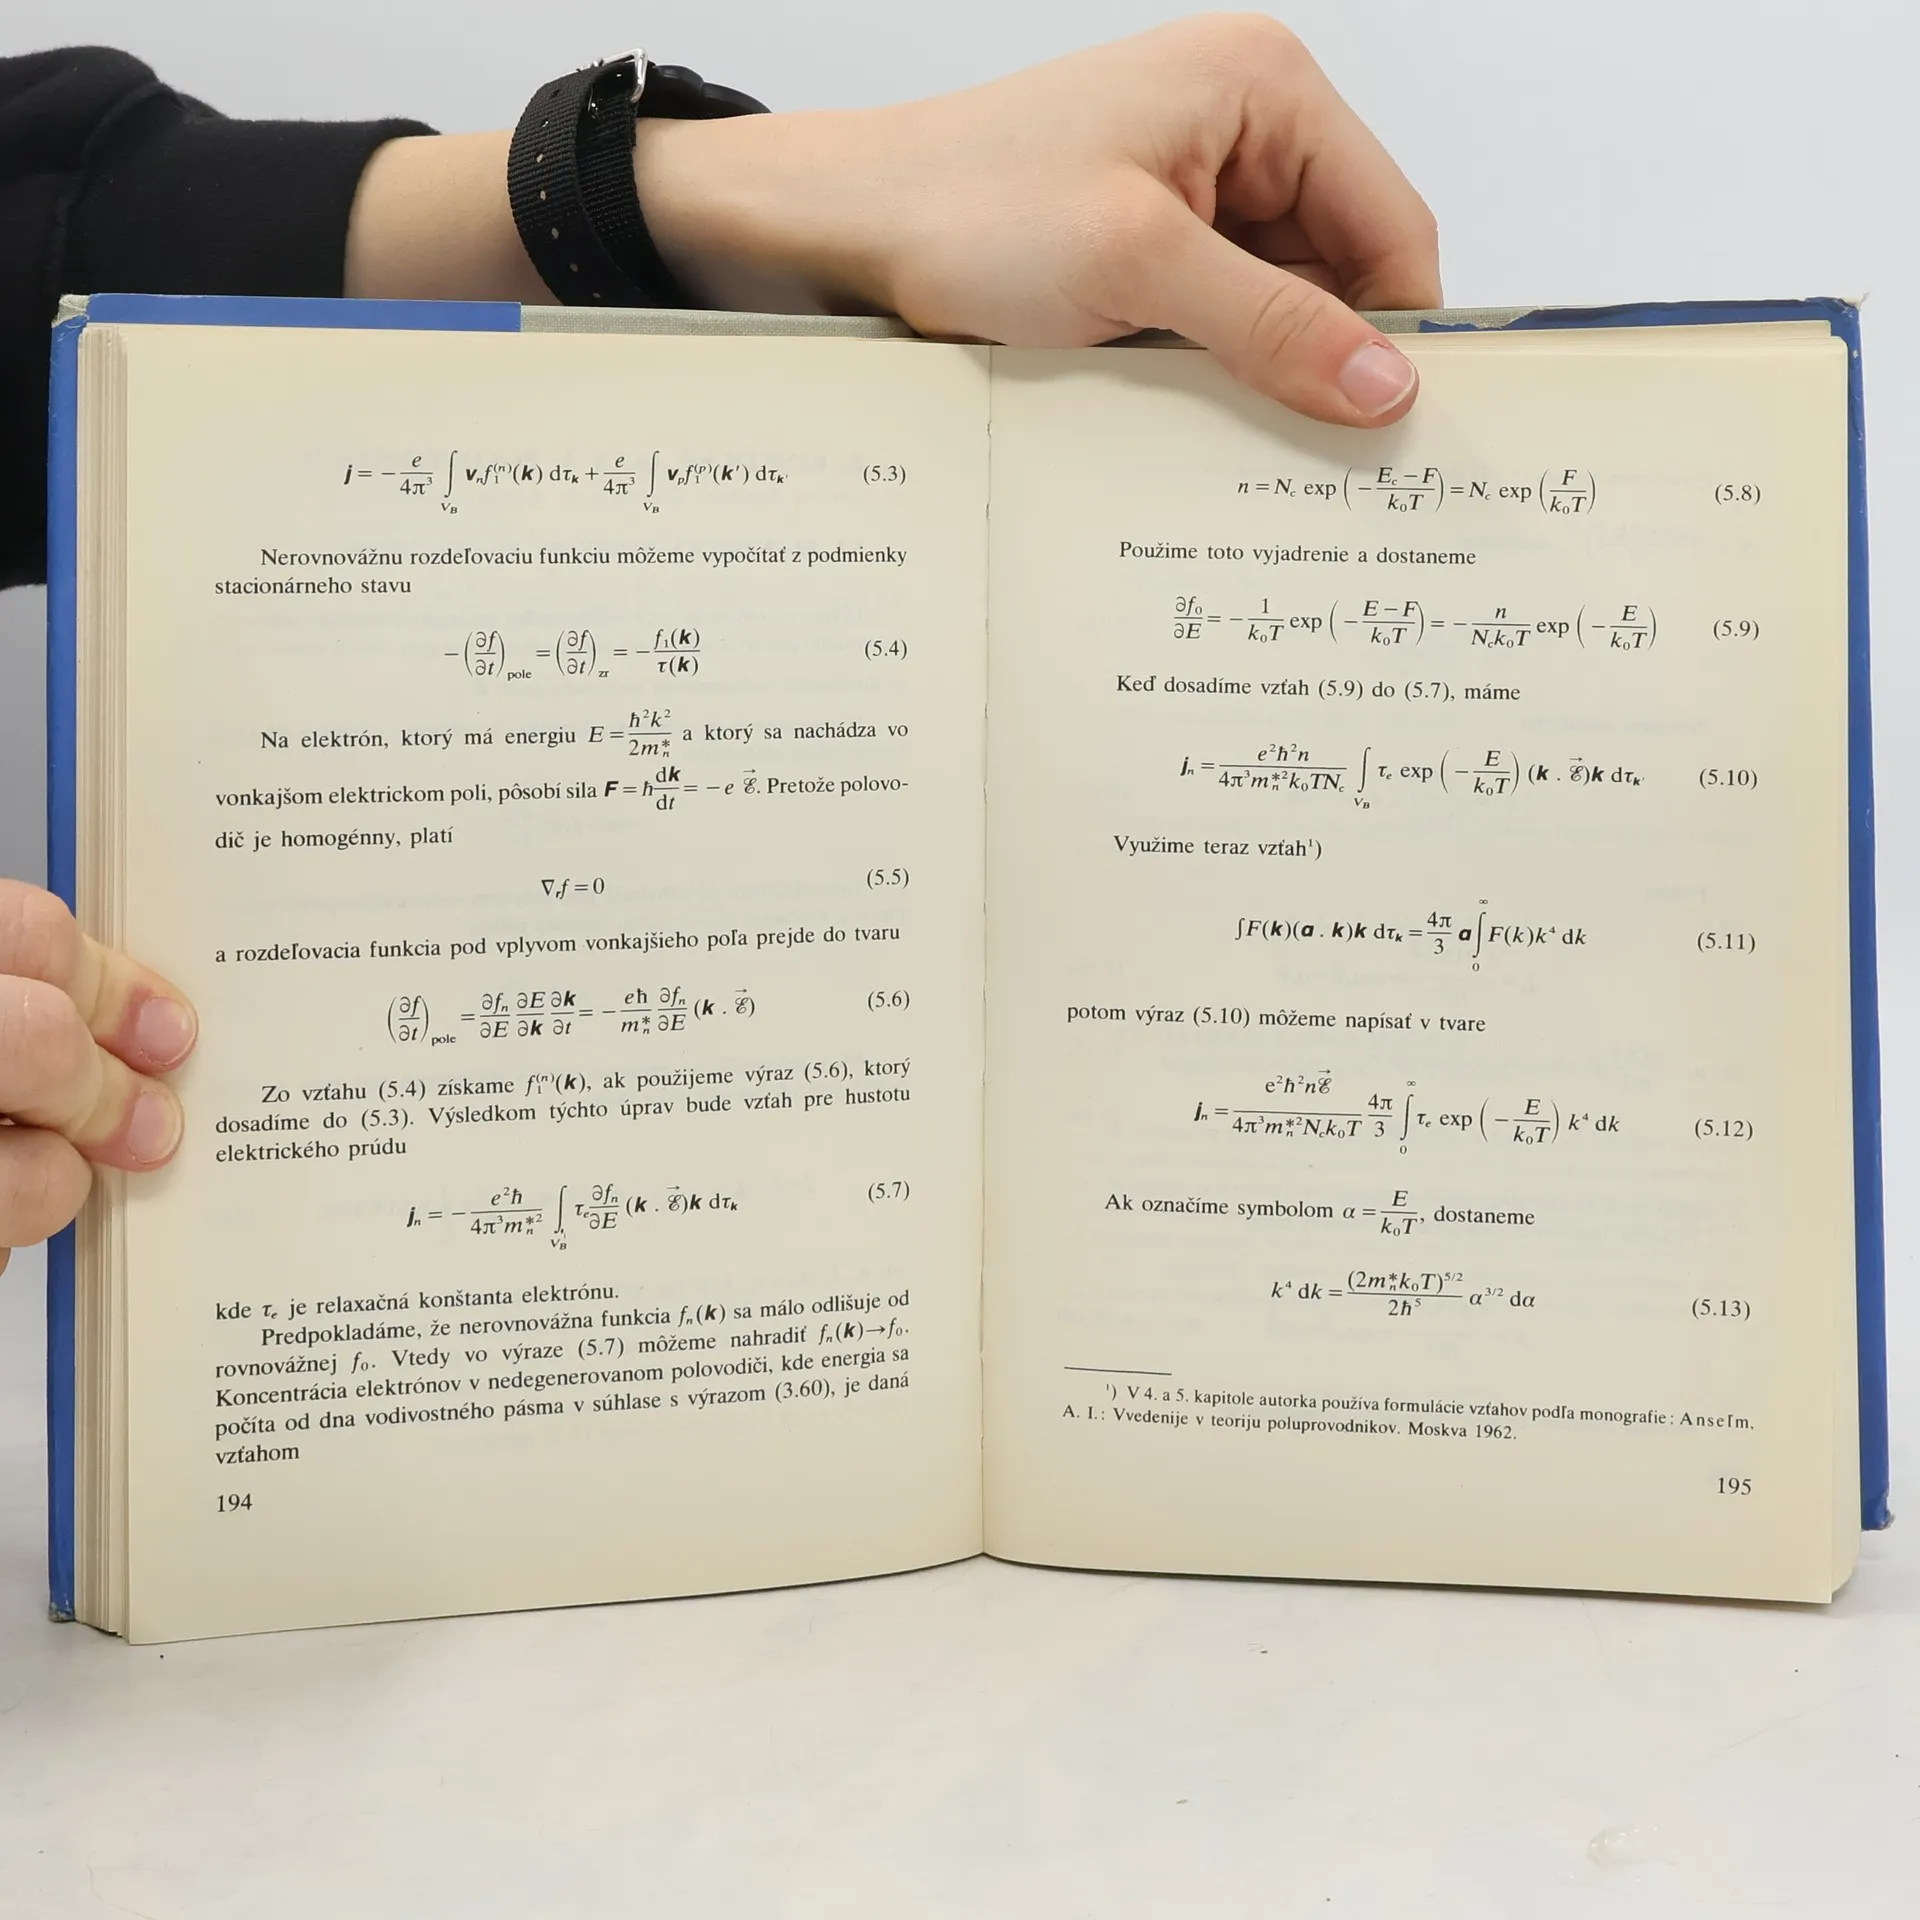 j = − e/4π³ ∫_{V_B} v_n f₁⁽ⁿ⁾(k) dτ_k + e/4π³ ∫_{V_B} v_p f₁⁽ᵖ⁾(k′) dτ_k′ (5.3)
Nerovnovážnu rozdeľovaciu funkciu môžeme vypočítať z podmienky
stacionárneho stavu
−(∂f/∂t)_pole = (∂f/∂t)_zr = − f₁(k)/τ(k) (5.4)
Na elektrón, ktorý má energiu E = ħ²k²/2m*_n a ktorý sa nachádza vo
vonkajšom elektrickom poli, pôsobí sila F = ħ dk/dt = − e ℰ⃗. Pretože polovo-
dič je homogénny, platí
∇_r f = 0 (5.5)
a rozdeľovacia funkcia pod vplyvom vonkajšieho poľa prejde do tvaru
(∂f/∂t)_pole = ∂f_n/∂E ∂E/∂k ∂k/∂t = − eħ/m*_n ∂f_n/∂E (k . ℰ⃗) (5.6)
Zo vzťahu (5.4) získame f₁⁽ⁿ⁾(k), ak použijeme výraz (5.6), ktorý
dosadíme do (5.3). Výsledkom týchto úprav bude vzťah pre hustotu
elektrického prúdu
j_n = − e²ħ/4π³m*_n² ∫_{V_B} τ_e ∂f_n/∂E (k . ℰ⃗)k dτ_k (5.7)
kde τ_e je relaxačná konštanta elektrónu.
Predpokladáme, že nerovnovážna funkcia f_n(k) sa málo odlišuje od
rovnovážnej f₀. Vtedy vo výraze (5.7) môžeme nahradiť f_n(k)→f₀.
Koncentrácia elektrónov v nedegenerovanom polovodiči, kde energia sa
počíta od dna vodivostného pásma v súhlase s výrazom (3.60), je daná
vzťahom
194
n = N_c exp (− (E_c − F)/k₀T) = N_c exp (F/k₀T) (5.8)
Použime toto vyjadrenie a dostaneme
∂f₀/∂E = − 1/k₀T exp (− (E − F)/k₀T) = − n/N_c k₀T exp (− E/k₀T) (5.9)
Keď dosadíme vzťah (5.9) do (5.7), máme
j_n = e²ħ²n/4π³m*_n²k₀TN_c ∫_{V_B} τ_e exp (− E/k₀T) (k . ℰ⃗)k dτ_k (5.10)
Využime teraz vzťah¹)
∫F(k)(a . k)k dτ_k = 4π/3 a ∫₀^∞ F(k)k⁴ dk (5.11)
potom výraz (5.10) môžeme napísať v tvare
j_n = e²ħ²nℰ⃗/4π³m*_n²N_c k₀T 4π/3 ∫₀^∞ τ_e exp (− E/k₀T) k⁴ dk (5.12)
Ak označíme symbolom α = E/k₀T, dostaneme
k⁴ dk = (2m*_n k₀T)^{5/2}/2ħ⁵ α^{3/2} dα (5.13)
¹) V 4. a 5. kapitole autorka používa formulácie vzťahov podľa monografie: Anseľm,
A. I.: Vvedenije v teoriju poluprovodnikov. Moskva 1962.
195